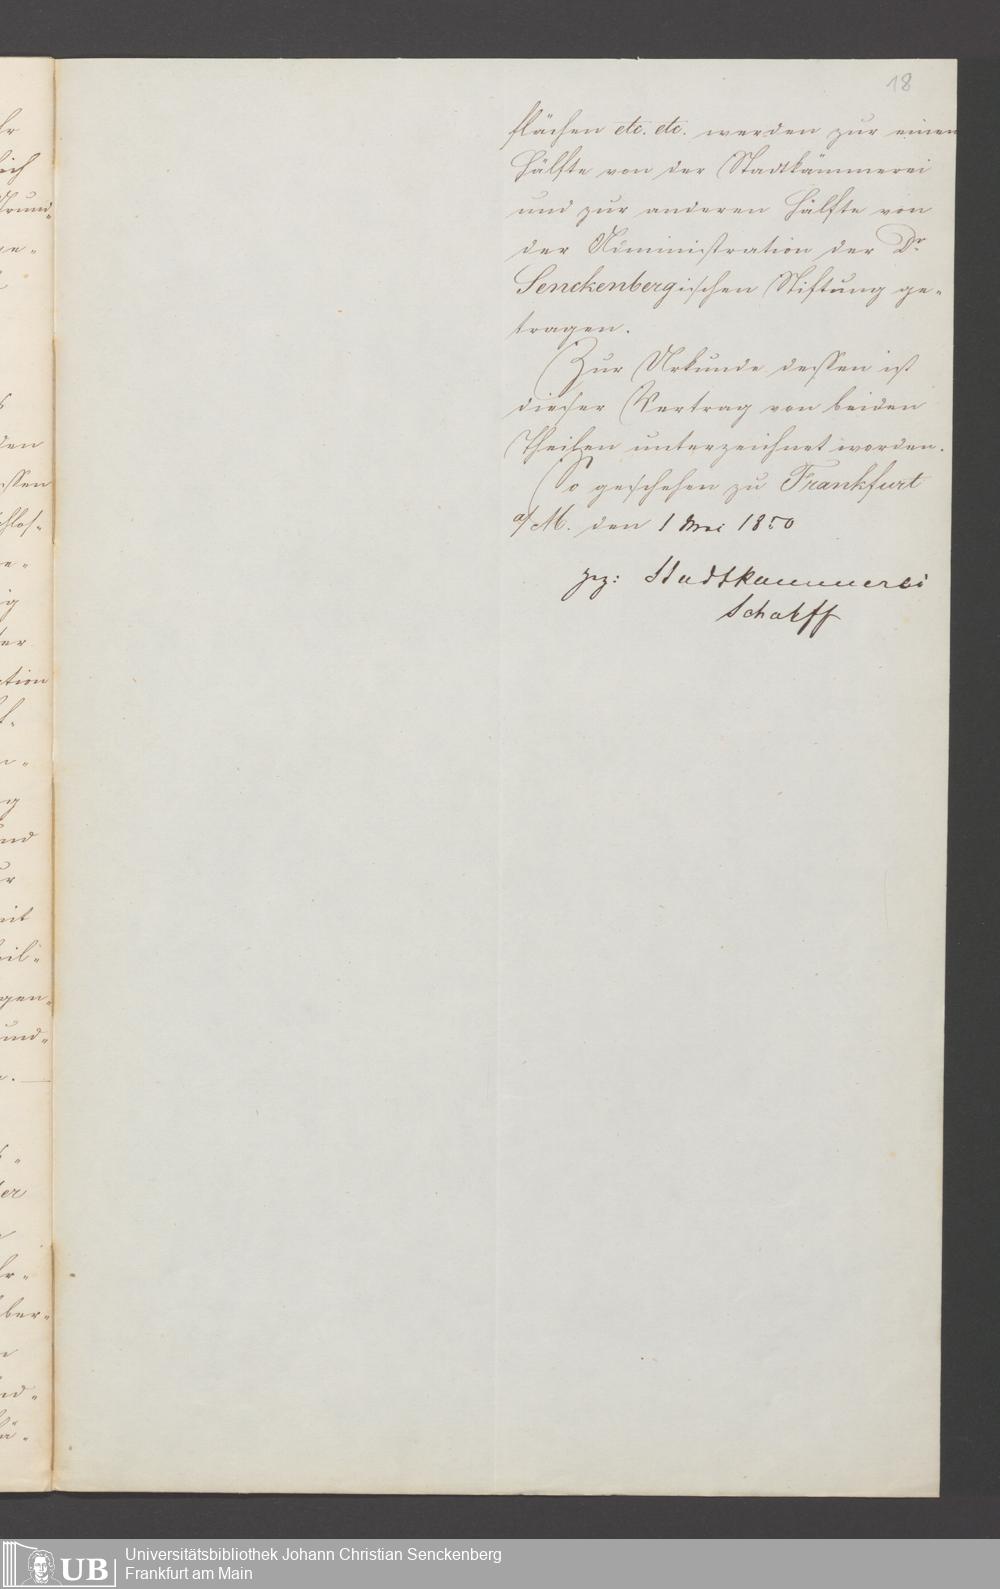 18
flächen etc. etc. werden zur einen
Hälfte von der Stadtkämmerei
und zur anderen Hälfte von
der Administration der Dr.
Senckenbergischen Stiftung ge-
tragen.
Zur Urkunde dessen ist
dieser Vertrag von beiden
Theilen unterzeichnet worden.
So geschehen zu Frankfurt
a/M. den 1 Mai 1850
gez: Stadtkaemmerei
Universitätsbibliothek Johann Christian Senckenberg
Frankfurt am Main
UB